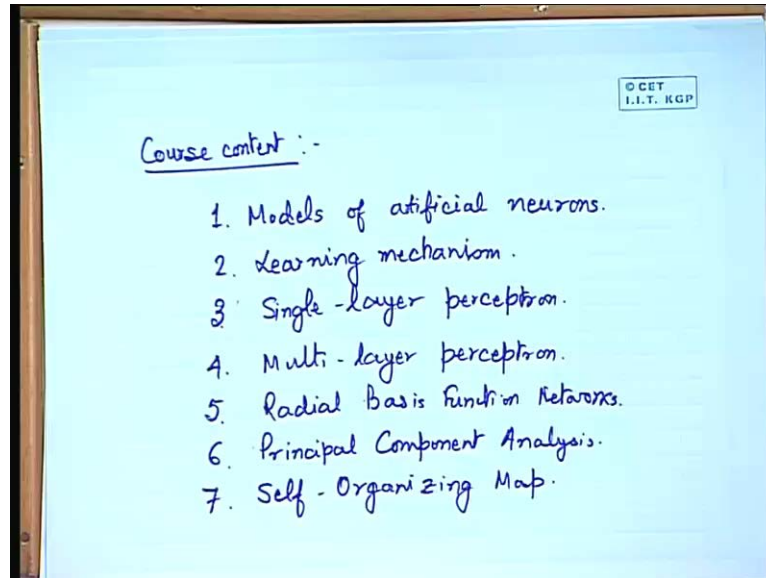 © CET
I.I.T. KGP
Course content :-
1. Models of atificial neurons.
2. Learning mechanism.
3. Single-layer perceptron.
4. Multi-layer perceptron.
5. Radial Basis Function Networks.
6. Principal Component Analysis.
7. Self-Organizing Map.